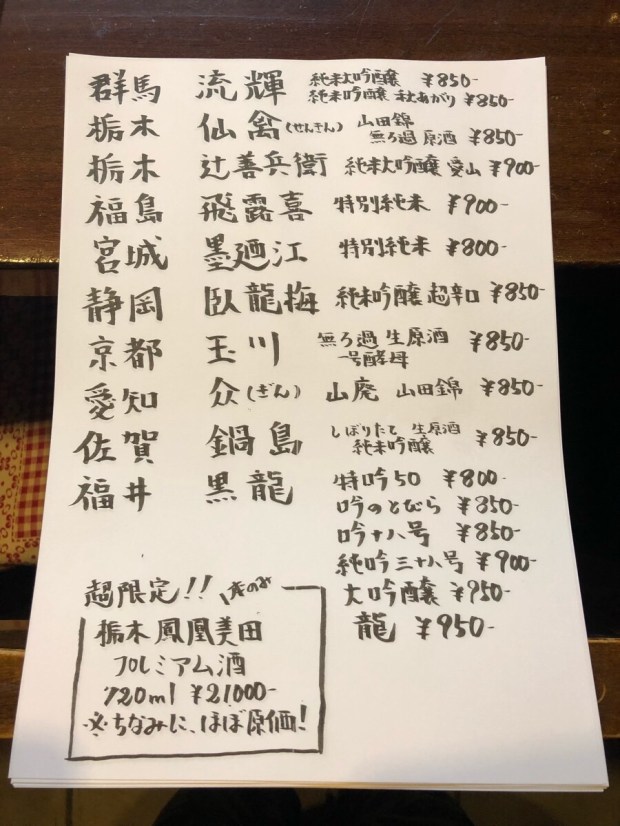 群馬 流輝 純米大吟醸 ¥850-
純米吟醸 秋あがり ¥850-
栃木 仙禽(せんきん) 山田錦
無ろ過原酒 ¥850-
栃木 辻善兵衛 純米大吟醸 愛山 ¥900-
福島 飛露喜 特別純米 ¥900-
宮城 墨廼江 特別純米 ¥800-
静岡 臥龍梅 純米吟醸 超辛口 ¥850-
京都 玉川 無ろ過 生原酒
一号酵母 ¥850-
愛知 众(ぎん) 山廃 山田錦 ¥850-
佐賀 鍋島 しぼりたて 生原酒
純米吟醸 ¥850-
福井 黒龍 特吟50 ¥800-
吟のとびら ¥850-
吟十八号 ¥850-
純吟三十八号 ¥900-
大吟醸 ¥950-
龍 ¥950-
超限定!!
栃木 鳳凰美田
プレミアム酒
720ml ¥21000-
※ちなみに、ほぼ原価!